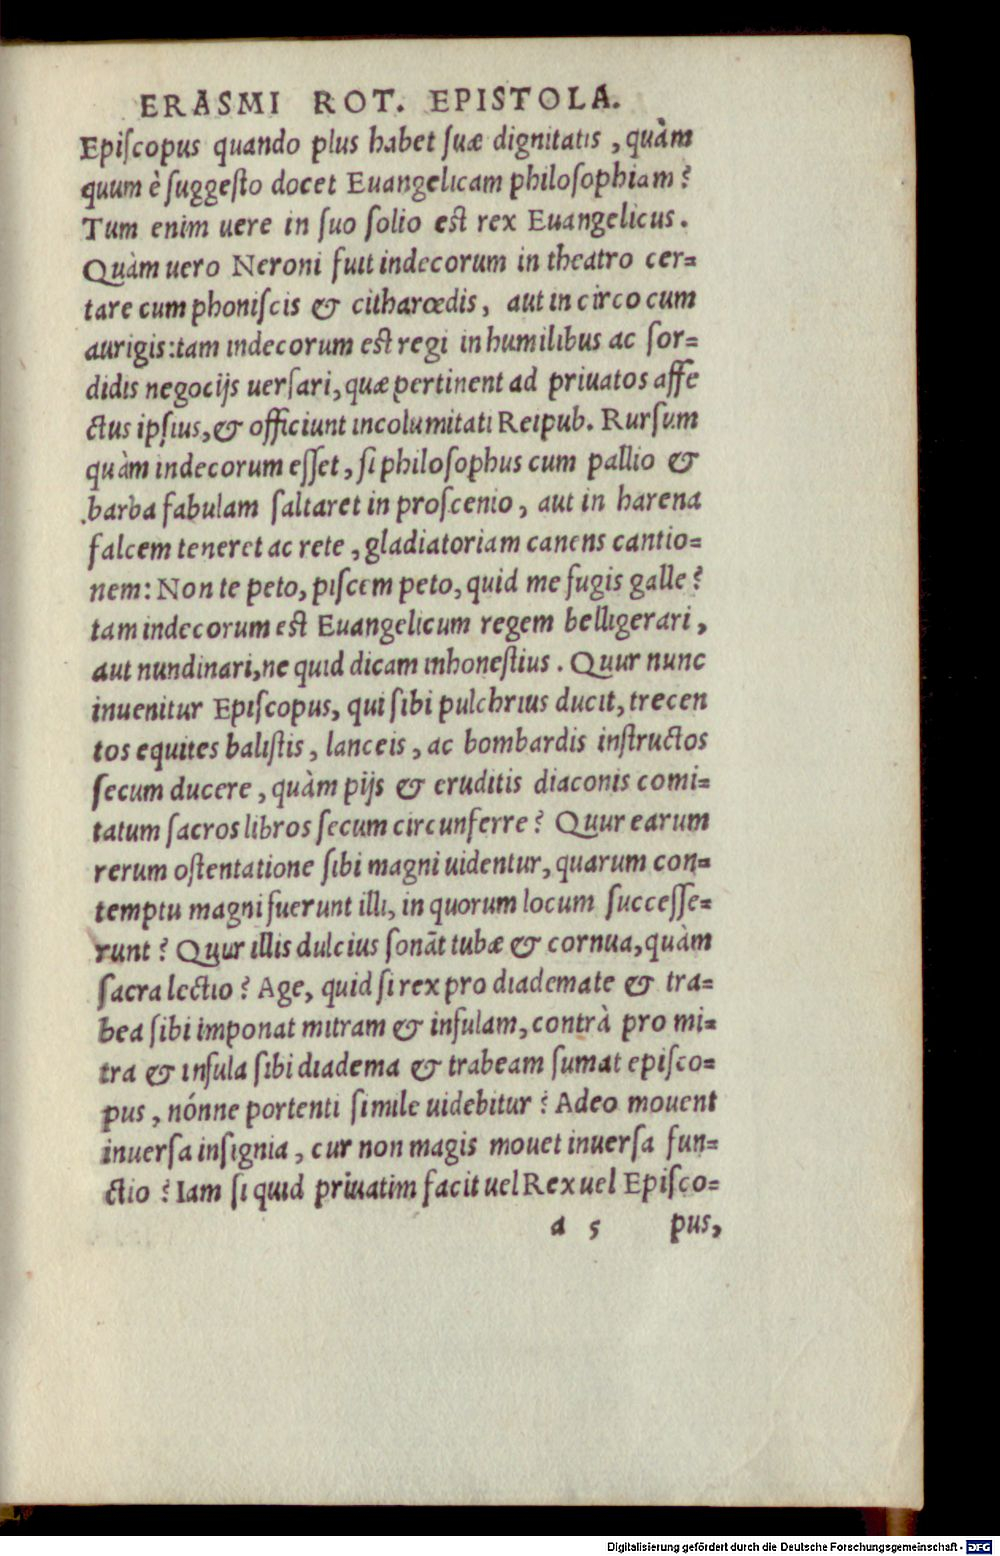 ERASMI ROT. EPISTOLA.
Epiſcopus quando plus habet ſuæ dignitatis, quàm
quum è ſuggeſto docet Euangelicam philoſophiam?
Tum enim uere in ſuo ſolio eſt rex Euangelicus.
Quàm uero Neroni fuit indecorum in theatro cer=
tare cum phoniſcis & citharœdis, aut in circo cum
aurigis: tam indecorum eſt regi in humilibus ac ſor=
didis negocijs uerſari, quæ pertinent ad priuatos affe
ctus ipſius, & officiunt incolumitati Reipub. Rurſum
quàm indecorum eſſet, ſi philoſophus cum pallio &
barba fabulam ſaltaret in proſcenio, aut in harena
falcem teneret ac rete, gladiatoriam canens cantio=
nem: Non te peto, piſcem peto, quid me fugis galle?
tam indecorum eſt Euangelicum regem belligerari,
aut nundinari, ne quid dicam inhoneſtius. Quur nunc
inuenitur Epiſcopus, qui ſibi pulchrius ducit, trecen
tos equites baliſtis, lanceis, ac bombardis inſtructos
ſecum ducere, quàm pijs & eruditis diaconis comi=
tatum ſacros libros ſecum circunferre? Quur earum
rerum oſtentatione ſibi magni uidentur, quarum con=
temptu magni fuerunt illi, in quorum locum ſucceſſe=
runt? Quur illis dulcius ſonāt tubæ & cornua, quàm
ſacra lectio? Age, quid ſi rex pro diademate & tra=
bea ſibi imponat mitram & inſulam, contrà pro mi=
tra & inſula ſibi diadema & trabeam ſumat epiſco=
pus, nónne portenti ſimile uidebitur? Adeo mouent
inuerſa inſignia, cur non magis mouet inuerſa fun=
ctio? Iam ſi quid priuatim facit uel Rex uel Epiſco=
a 5 pus,
Digitalisierung gefördert durch die Deutsche Forschungsgemeinschaft - DFG